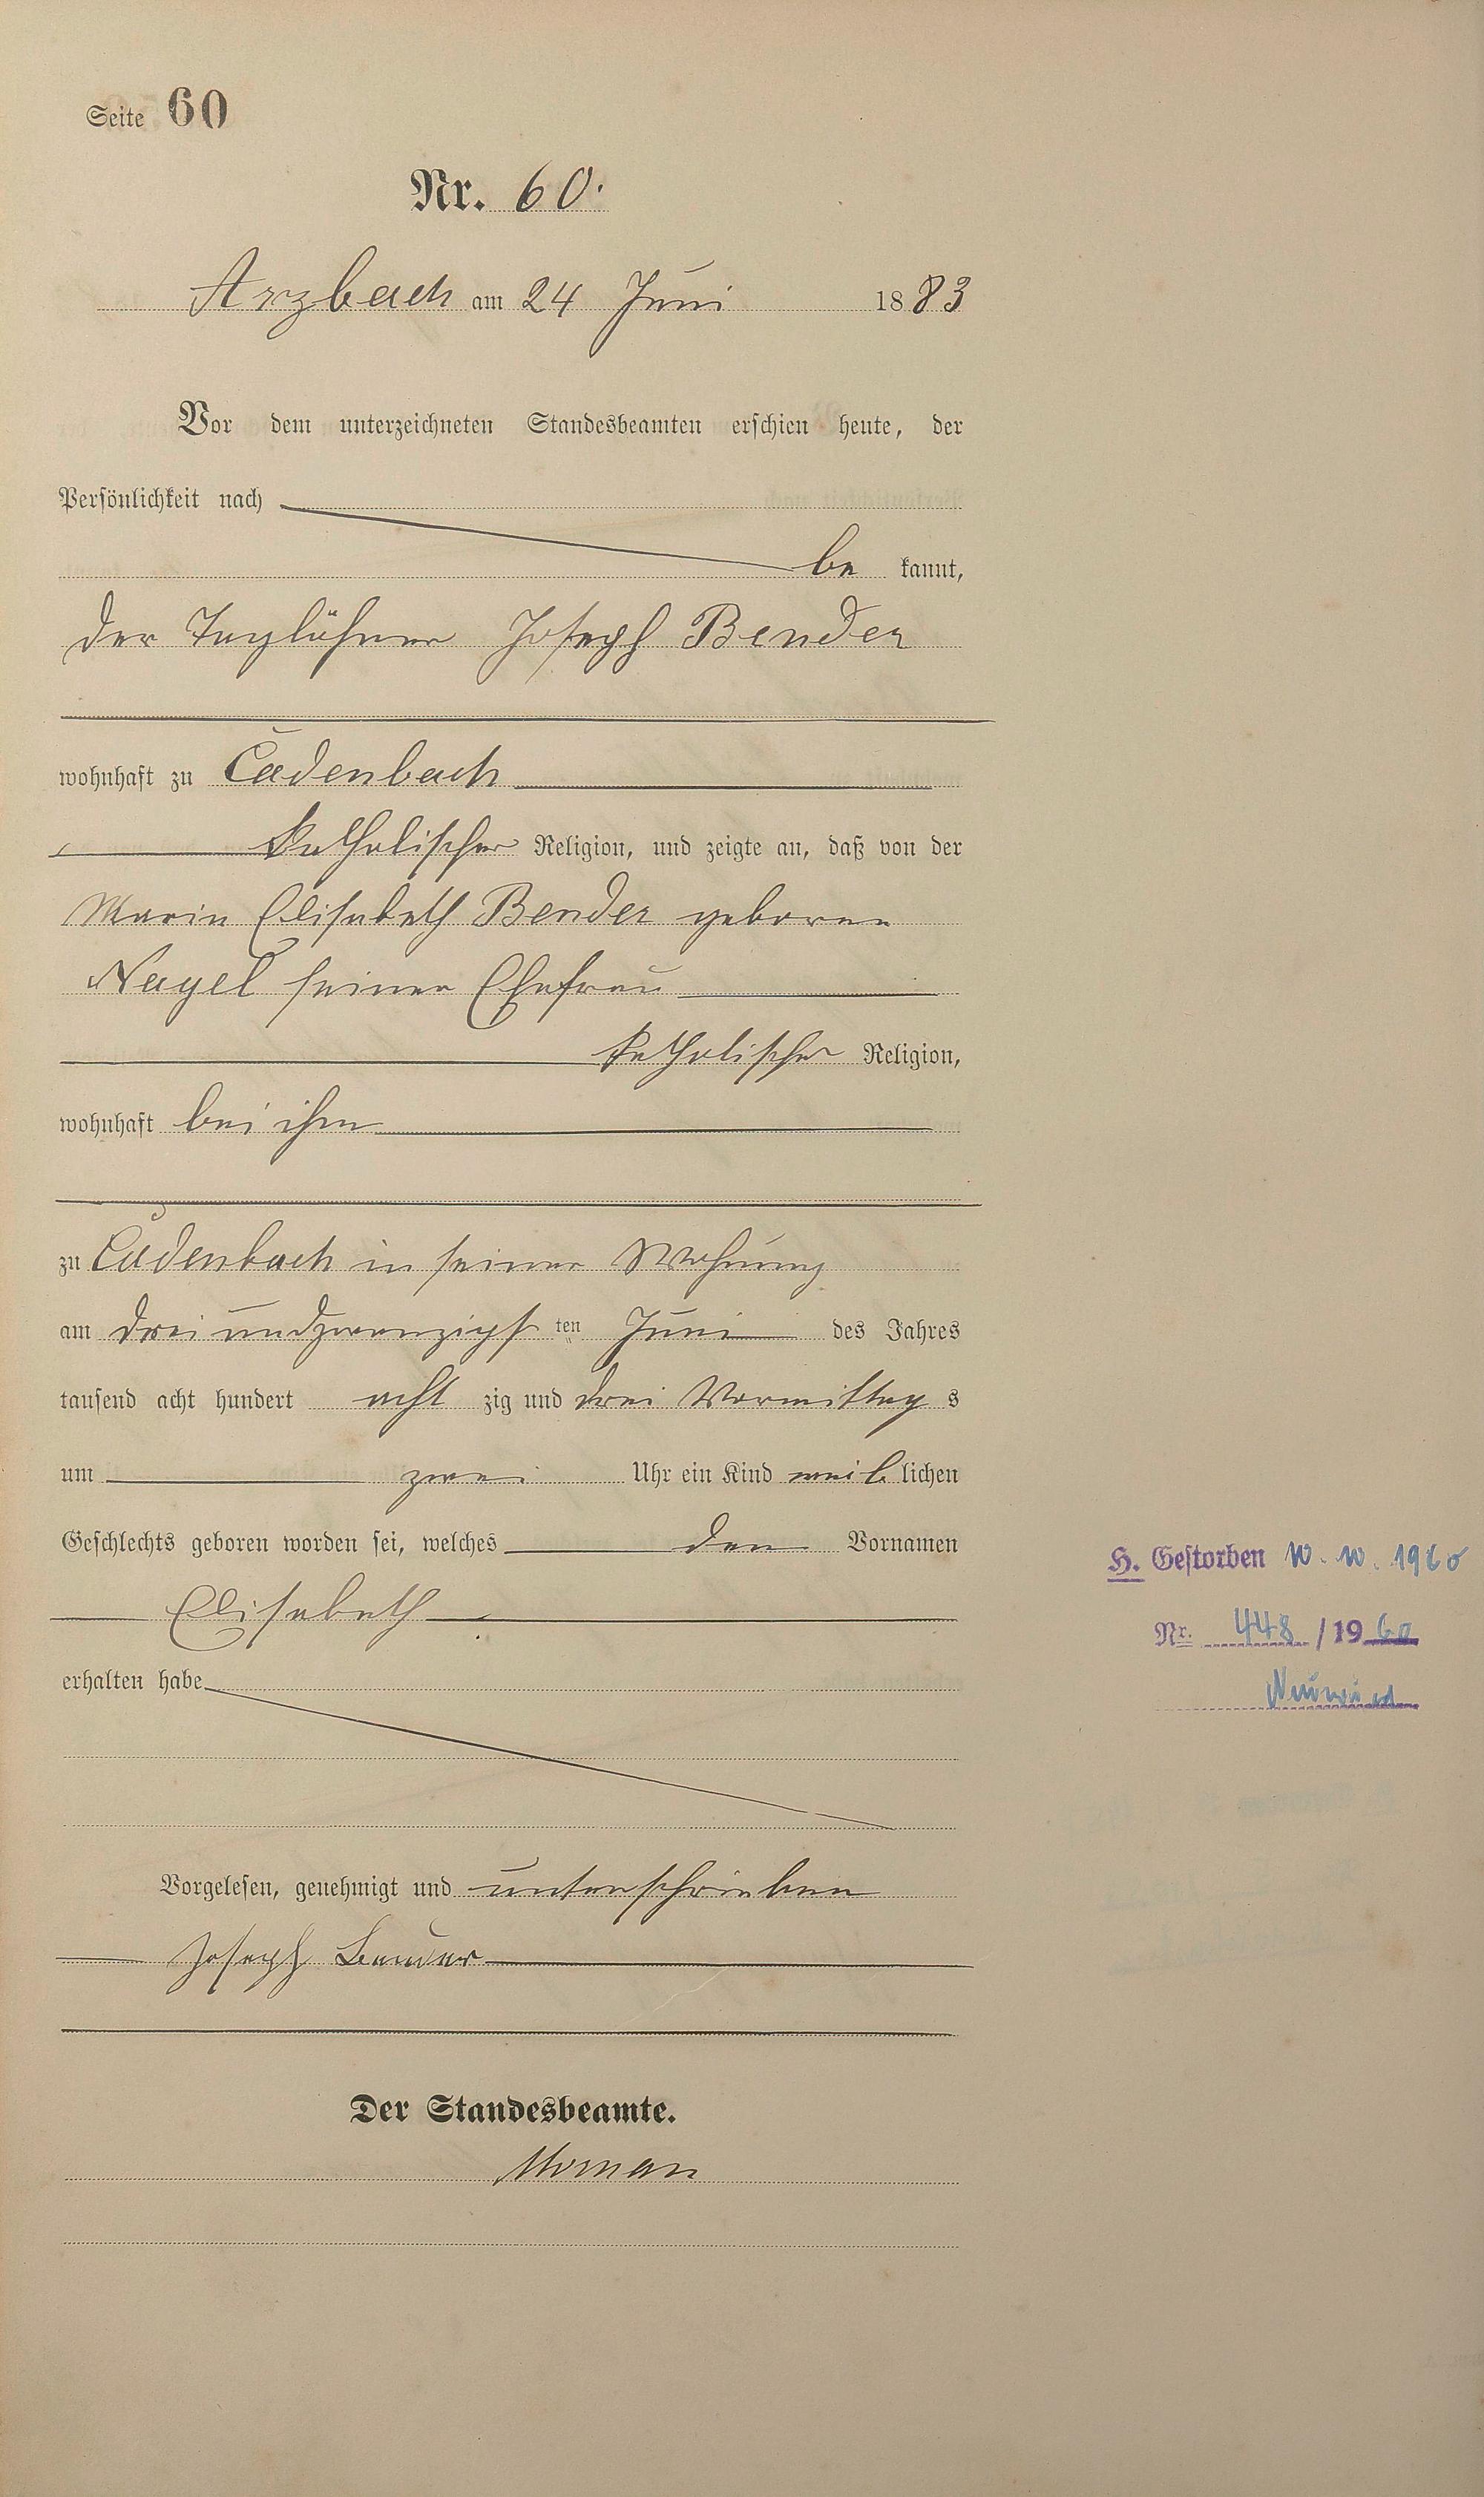 Seite 60
Nr. 60.
Arzbach am 24 Juni 1883
Vor dem unterzeichneten Standesbeamten erschien heute, der
Persönlichkeit nach
be kannt,
der Taglöhner Joseph Bender
wohnhaft zu Cadenbach
katholischer Religion, und zeigte an, daß von der
Maria Elisabeth Bender geborene
Nagel seiner Ehefrau
katholischer Religion,
wohnhaft bei ihm
zu Cadenbach in seiner Wohnung
am drei undzwanzigs ten Juni des Jahres
tausend acht hundert acht zig und drei Vormittag s
um zwei Uhr ein Kind weib lichen
Geschlechts geboren worden sei, welches den Vornamen
Elisabeth
erhalten habe
Vorgelesen, genehmigt und unterschrieben
Joseph Bender
Der Standesbeamte.
H. Gestorben 10. 10. 1960
Nr. 448 / 1960
Neuwied